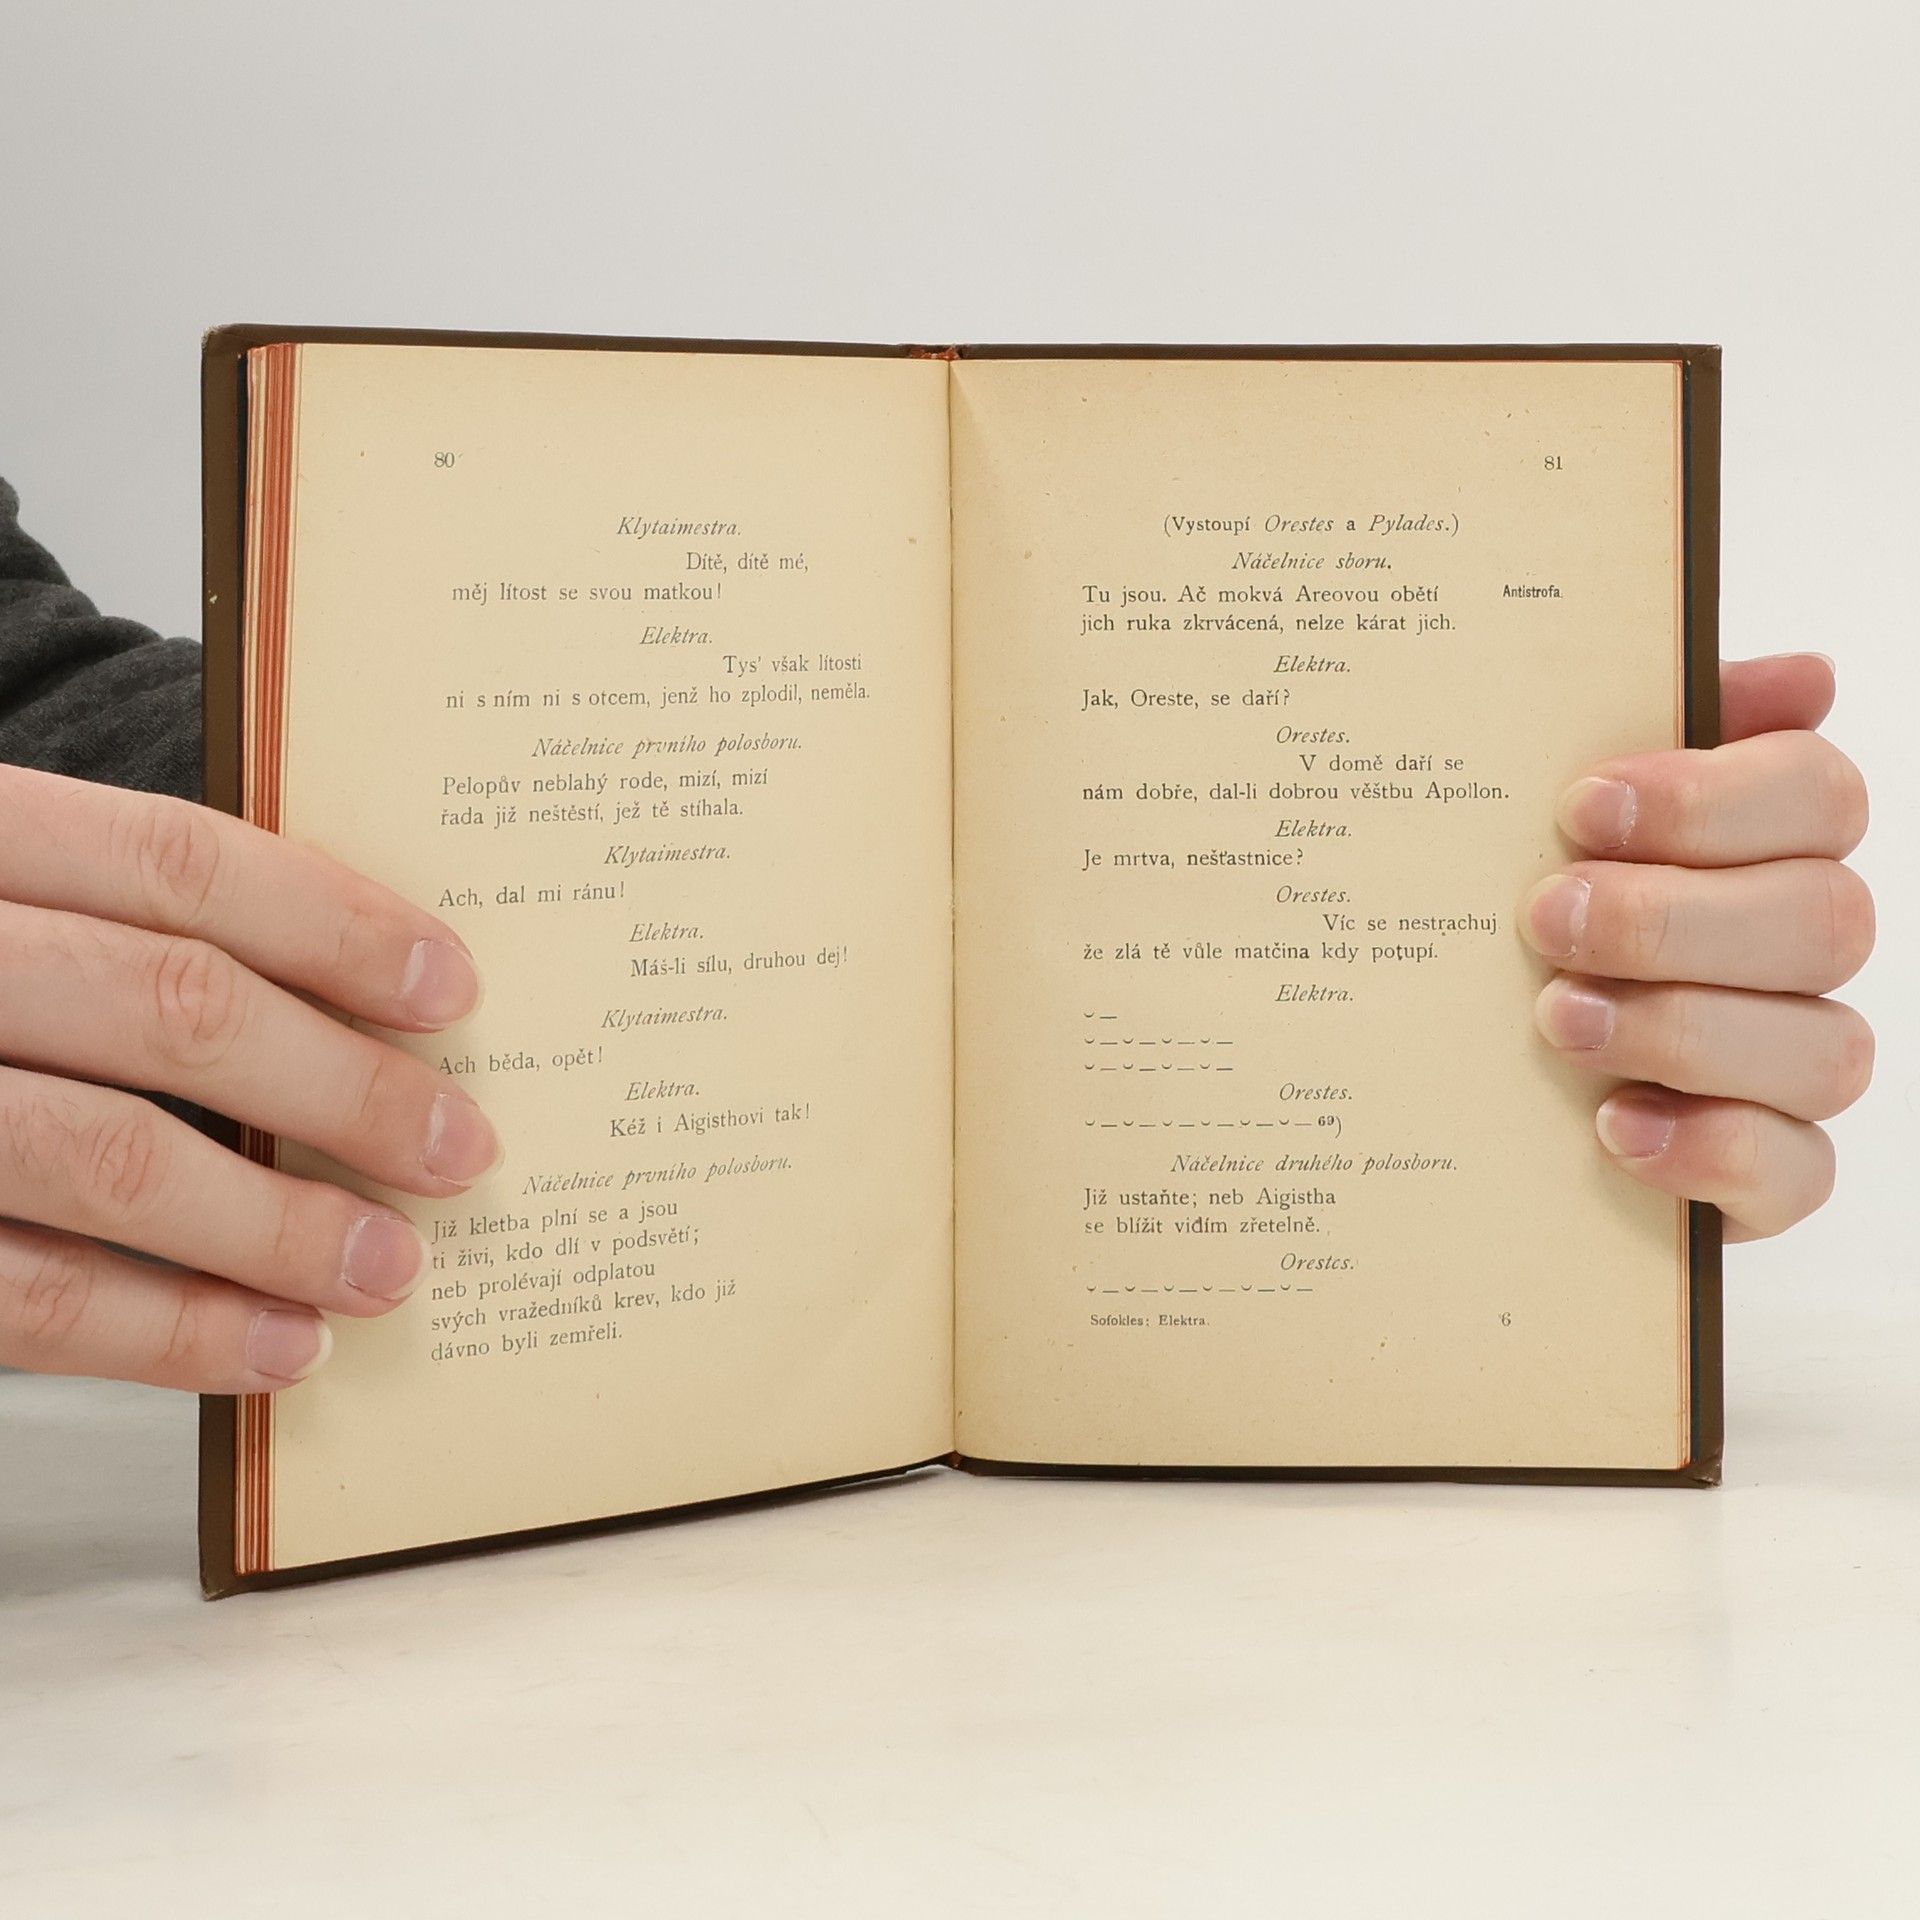 80
Klytaimestra.
Dítě, dítě mé,
měj lítost se svou matkou!
Elektra.
Tys' však lítosti
ni s ním ni s otcem, jenž ho zplodil, neměla.
Náčelnice prvního polosboru.
Pelopův neblahý rode, mizí, mizí
řada již neštěstí, jež tě stíhala.
Klytaimestra.
Ach, dal mi ránu!
Elektra.
Máš-li sílu, druhou dej!
Klytaimestra.
Ach běda, opět!
Elektra.
Kéž i Aigisthovi tak!
Náčelnice prvního polosboru.
Již kletba plní se a jsou
ti živi, kdo dlí v podsvětí;
neb prolévají odplatou
svých vražedníků krev, kdo již
dávno byli zemřeli.
81
(Vystoupí Orestes a Pylades.)
Náčelnice sboru.
Tu jsou. Ač mokvá Areovou obětí Antistrofa.
jich ruka zkrvácená, nelze kárat jich.
Elektra.
Jak, Oreste, se daří?
Orestes.
V domě daří se
nám dobře, dal-li dobrou věštbu Apollon.
Elektra.
Je mrtva, nešťastnice?
Orestes.
Víc se nestrachuj
že zlá tě vůle matčina kdy potupí.
Elektra.
⏑ —
⏑ — ⏑ — ⏑ — ⏑ —
⏑ — ⏑ — ⏑ — ⏑ —
Orestes.
⏑ — ⏑ — ⏑ — ⏑ — ⏑ — ⏑ — 69)
Náčelnice druhého polosboru.
Již ustaňte; neb Aigistha
se blížit vidím zřetelně.
Orestes.
⏑ — ⏑ — ⏑ — ⏑ — ⏑ — ⏑ —
Sofokles: Elektra. 6